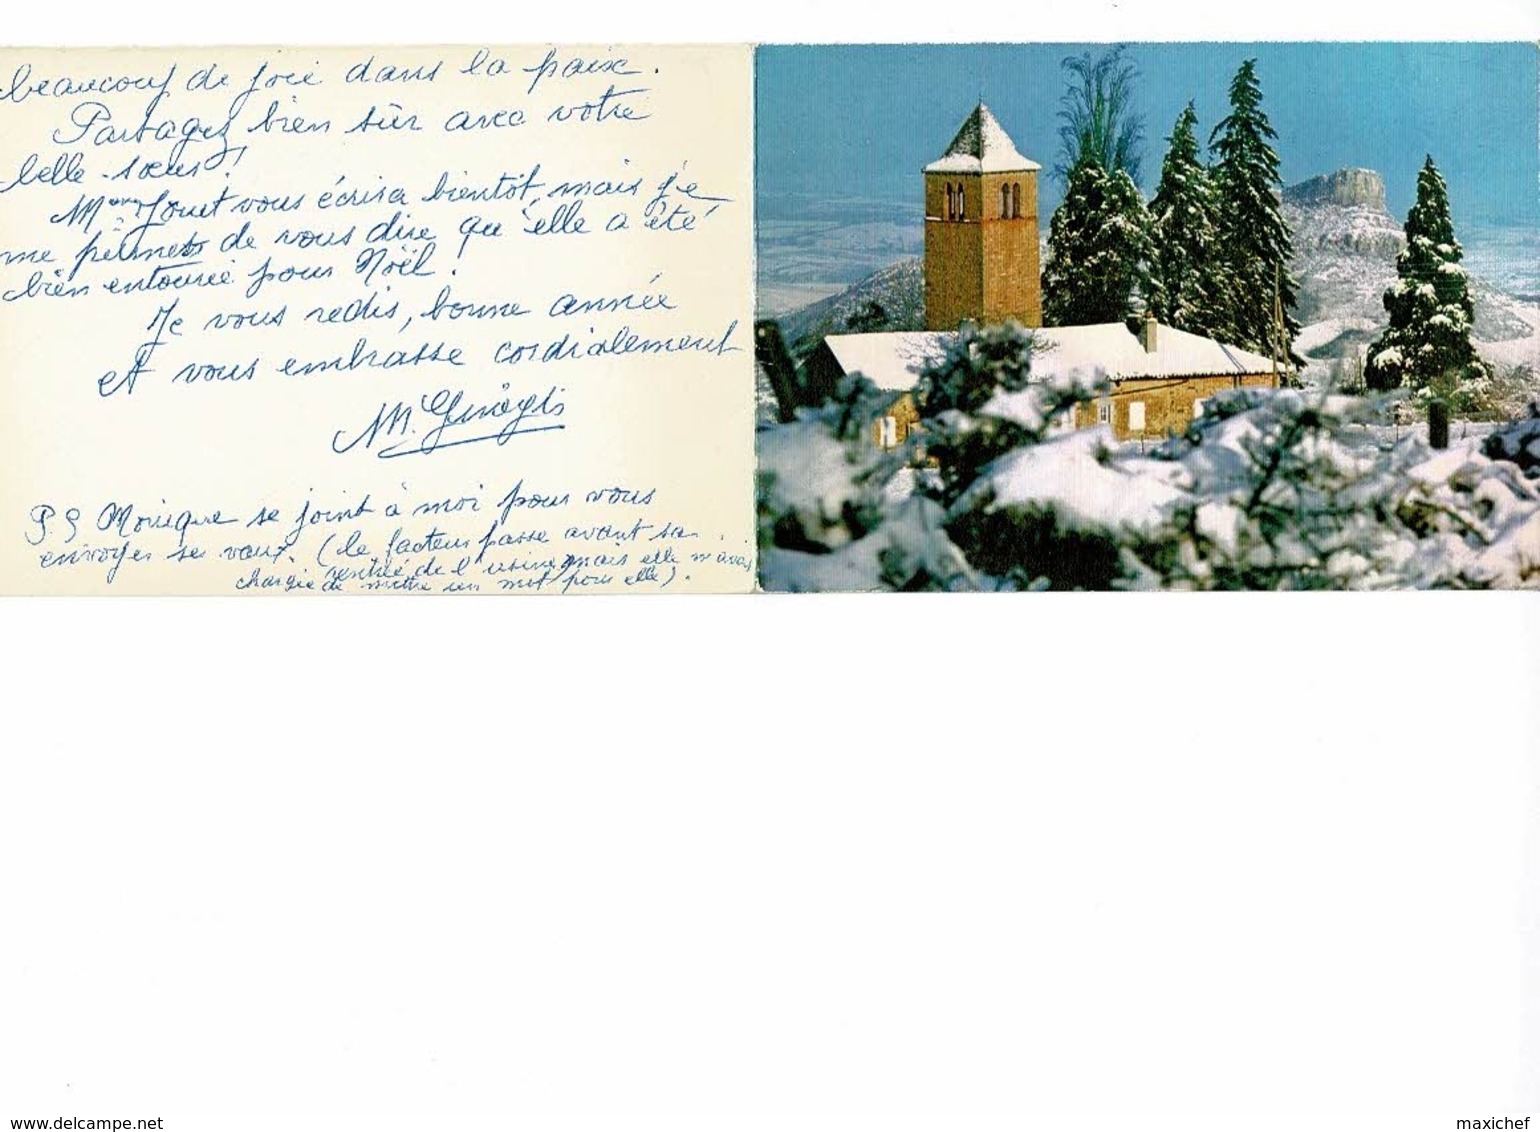 beaucoup de joie dans la paix.
Partagez bien sûr avec votre
belle-sœur!
Mme Jouet vous écrira bientôt, mais je
me permets de vous dire qu'elle a été
bien entourée pour Noël.
Je vous redis, bonne année
et vous embrasse cordialement
M.
P.S Monique se joint à moi pour vous
envoyer ses vœux. (le facteur passe avant sa
rentrée de l'usine, mais elle m'avais
chargée de mettre un mot pour elle).
www.delcampe.net
maxichef